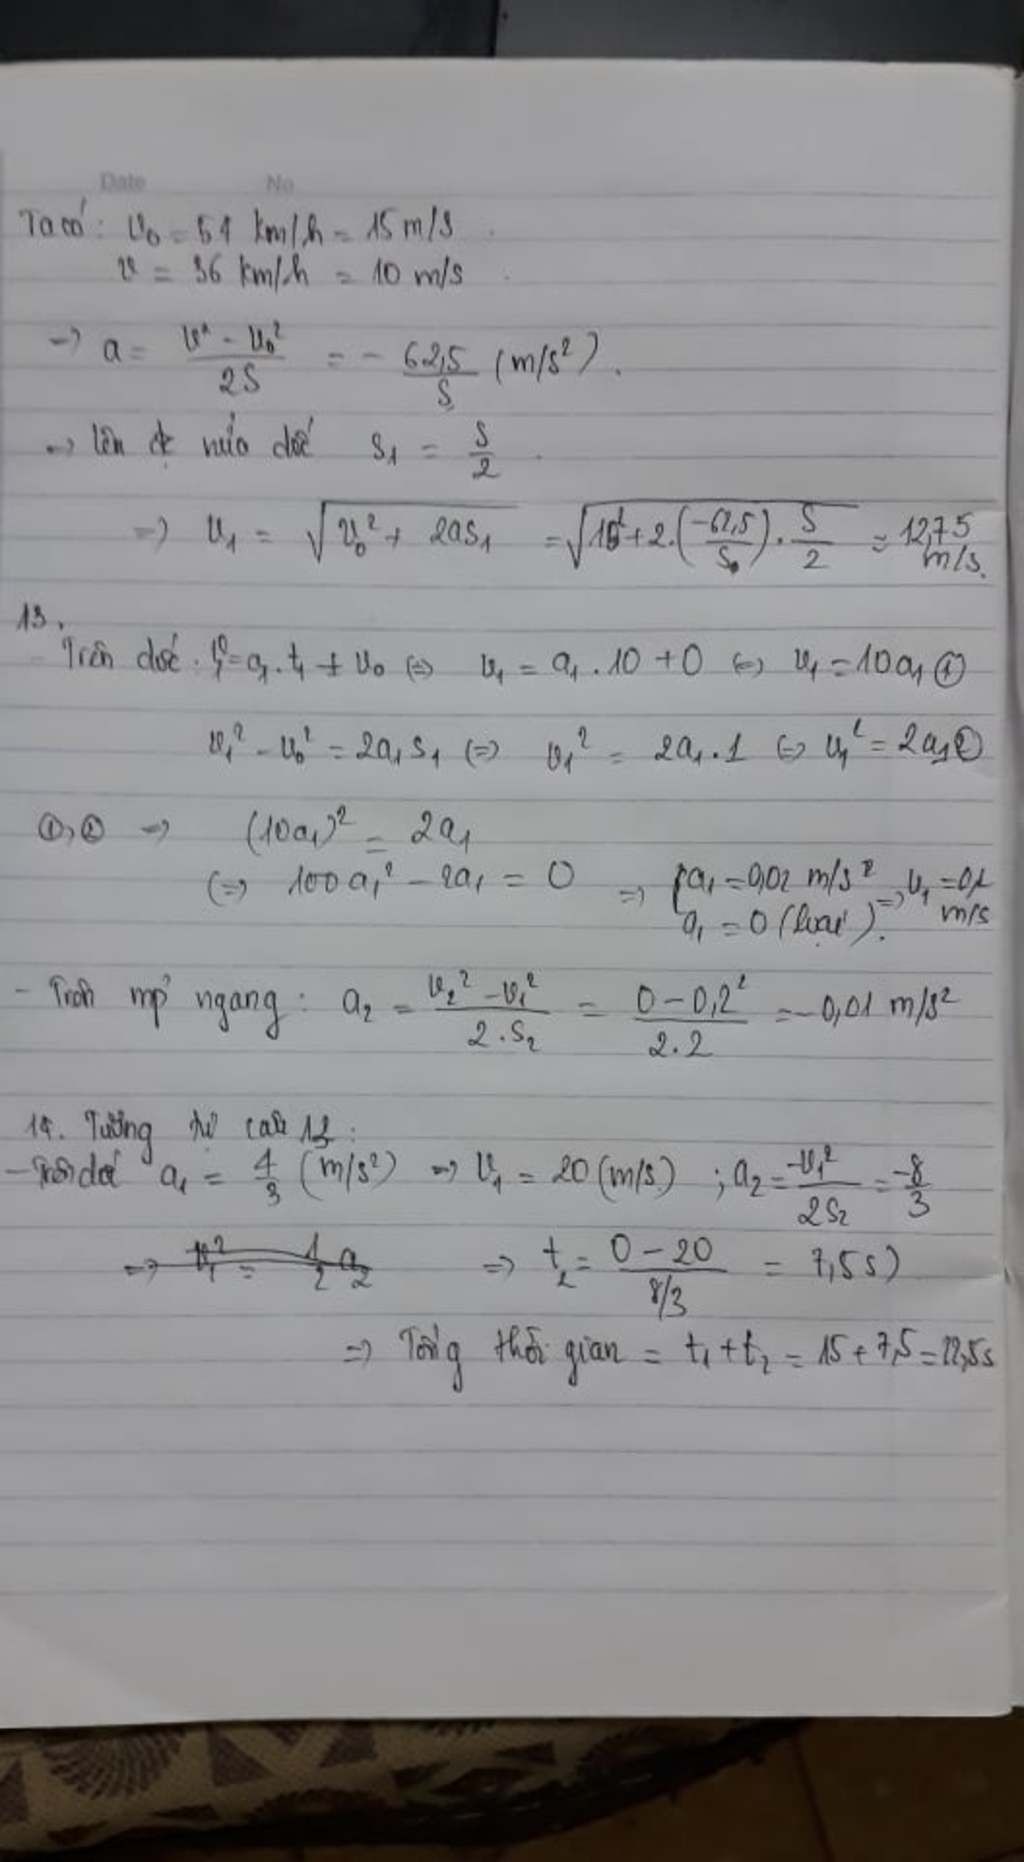 Date No
Ta có: v₀ = 54 km/h = 15 m/s
v = 36 km/h = 10 m/s
=> a = (v² - v₀²)/(2S) = - 62,5/S (m/s²).
=> lên đc nửa dốc S₁ = S/2.
=> v₁ = √(v₀² + 2aS₁) = √(15² + 2.(-62,5/S).S/2) = 12,75 m/s.
13.
- Trên dốc: v₁ = a₁.t₁ + v₀ <=> v₁ = a₁.10 + 0 <=> v₁ = 10a₁ ①
v₁² - v₀² = 2a₁S₁ <=> v₁² = 2a₁.1 <=> v₁² = 2a₁ ②
①,② => (10a₁)² = 2a₁
<=> 100a₁² - 2a₁ = 0 => { a₁ = 0,02 m/s² => v₁ = 0,2 m/s
a₁ = 0 (loại).
- Trên mp ngang: a₂ = (v₂² - v₁²)/(2.S₂) = (0 - 0,2²)/(2.2) = -0,01 m/s²
14. Tương tự câu 13:
- Trên dốc a₁ = 4/3 (m/s²) => v₁ = 20 (m/s) ; a₂ = -v₁²/(2S₂) = -8/3
=> t₂ = (0 - 20)/(8/3) = 7,5 s)
=> Tổng thời gian = t₁ + t₂ = 15 + 7,5 = 22,5s